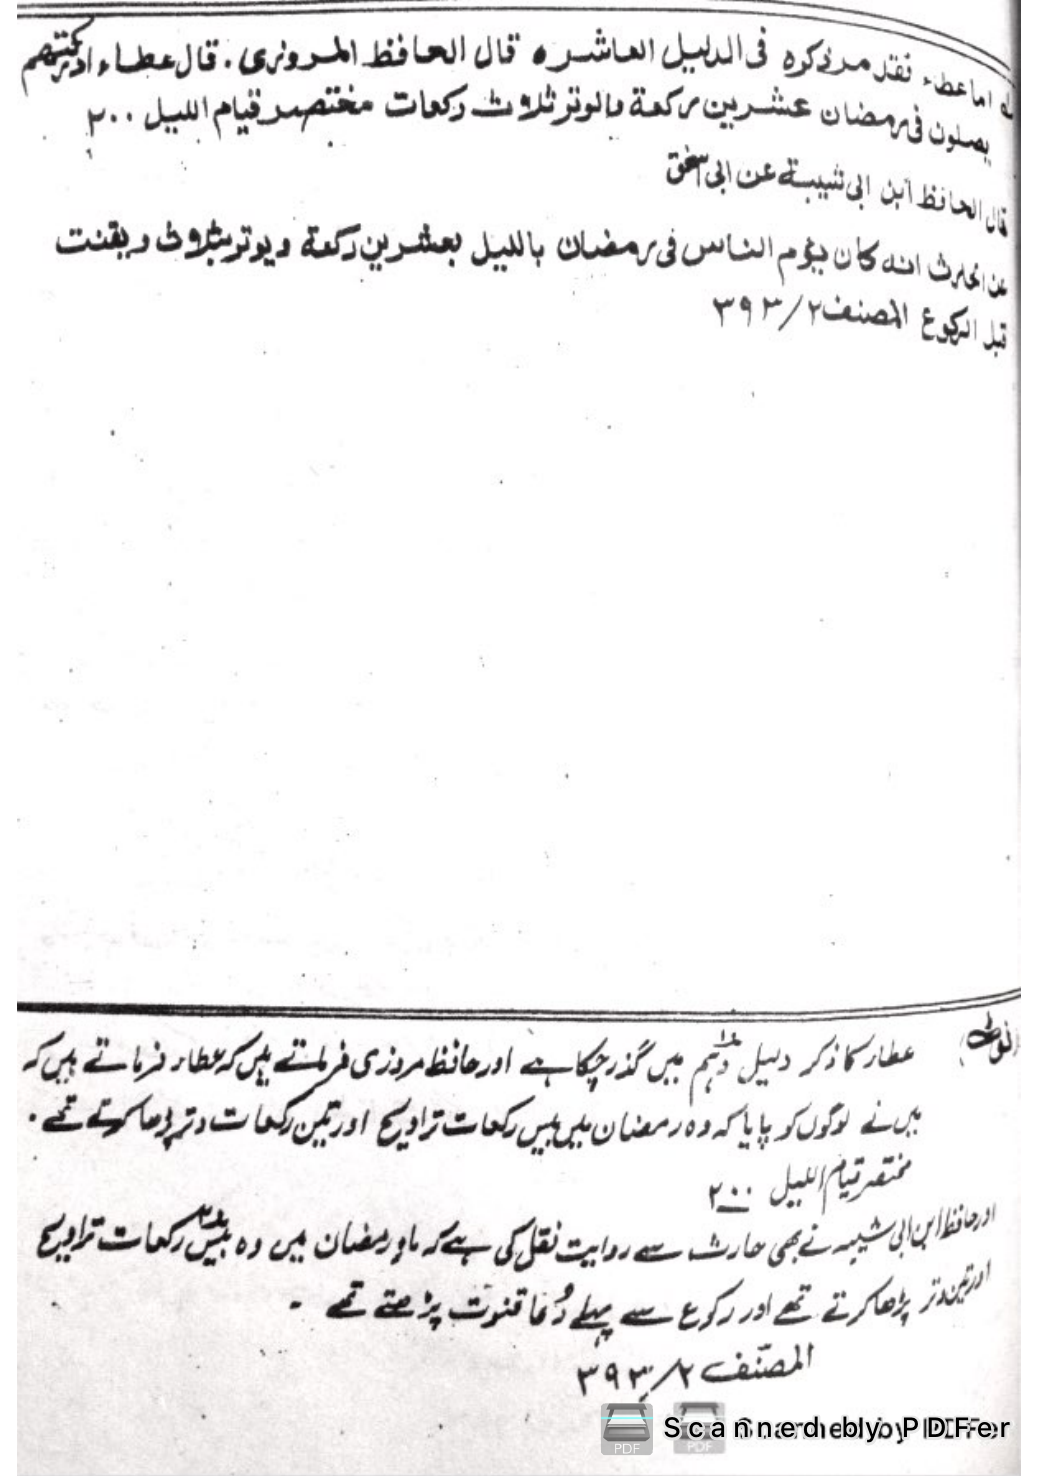 له اما عطاء فقد مر ذكره فى الدليل العاشره قال الحافظ المروزى . قال عطاء ادركتهم
يصلون فى رمضان عشرين ركعة والوتر ثلاث ركعات مختصر قيام الليل ٢٠٠
قال الحافظ ابن ابى شيبة عن ابى اسحٰق
عن الحارث انه كان يؤم الناس فى رمضان بالليل بعشرين ركعة ويوتر بثلاث ويقنت
قبل الركوع المصنف ٢/٣٩٣
(نوٹ) عطاء کا ذکر دلیل دہم میں گذر چکا ہے اور حافظ مروزی فرماتے ہیں کہ عطاء فرماتے ہیں کہ
میں نے لوگوں کو پایا کہ وہ رمضان میں بیس رکعات تراویح اور تین رکعات وتر پڑھا کرتے تھے ۔
مختصر قیام اللیل ٢٠٠
اور حافظ ابن ابی شیبہ نے بھی حارث سے روایت نقل کی ہے کہ ماہ رمضان میں وہ بیس رکعات تراویح
اور تین وتر پڑھا کرتے تھے اور رکوع سے پہلے دُعا قنوت پڑھتے تھے ۔
المصنّف ٢/٣٩٣
Scanned by PDFer